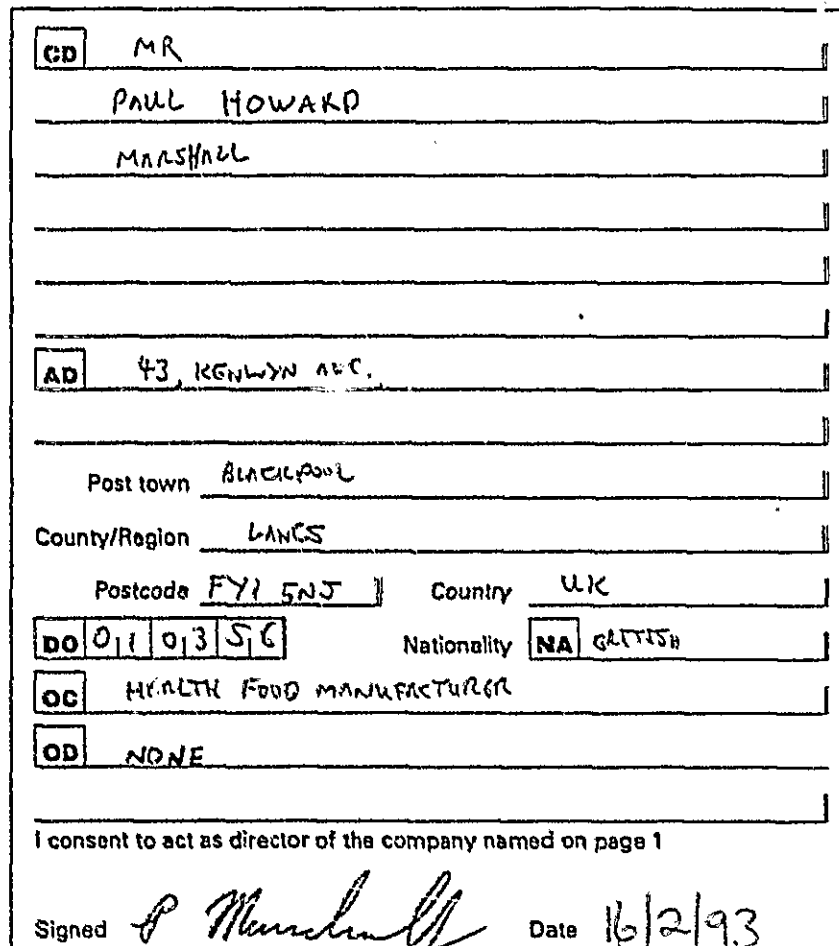 CD MR
PAUL HOWARD
MARSHALL
AD 43, KENWYN AVE.
Post town BLACKPOOL
County/Region LANCS
Postcode FY1 5NJ Country UK
DO 01 03 56 Nationality NA BRITISH
OC HEALTH FOOD MANUFACTURER
OD NONE
I consent to act as director of the company named on page 1
Signed P Marshall Date 16/2/93